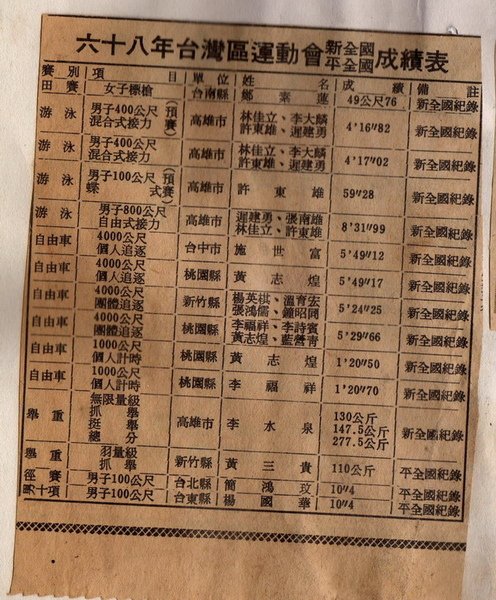 六十八年台灣區運動會新全國平全國成績表
賽別 項目 單位 姓名 成績 備註
田賽 女子標槍 台南縣 鄭素蓮 49公尺76 新全國紀錄
游泳 男子400公尺混合式接力(預賽) 高雄市 林佳立、李大麟 許東雄、遲建勇 4'16"82 新全國紀錄
游泳 男子400公尺混合式接力 高雄市 林佳立、李大麟 許東雄、遲建勇 4'17"02 新全國紀錄
游泳 男子100公尺蝶式(預賽) 高雄市 許東雄 59"28 新全國紀錄
游泳 男子800公尺自由式接力 高雄市 遲建勇、張南雄 林佳立、許東雄 8'31"99 新全國紀錄
自由車 4000公尺個人追逐 台中市 施世富 5'49"12 新全國紀錄
自由車 4000公尺個人追逐 桃園縣 黃志煌 5'49"17 新全國紀錄
自由車 4000公尺團體追逐 新竹縣 楊英祺、溫育宏 張鴻儒、鐘昭同 5'24"25 新全國紀錄
自由車 4000公尺團體追逐 桃園縣 李福祥、李詩賓 黃志煌、藍營青 5'29"66 新全國紀錄
自由車 1000公尺個人計時 桃園縣 黃志煌 1'20"50 新全國紀錄
自由車 1000公尺個人計時 桃園縣 李福祥 1'20"70 新全國紀錄
舉重 無限量級 抓舉 挺舉 總分 高雄市 李水泉 130公斤 147.5公斤 277.5公斤 新全國紀錄
舉重 羽量級 抓舉 新竹縣 黃三貴 110公斤 平全國紀錄
徑賽 男子100公尺 台北縣 簡鴻玟 10"4 平全國紀錄
十項 男子100公尺 台東縣 楊國華 10"4 平全國紀錄